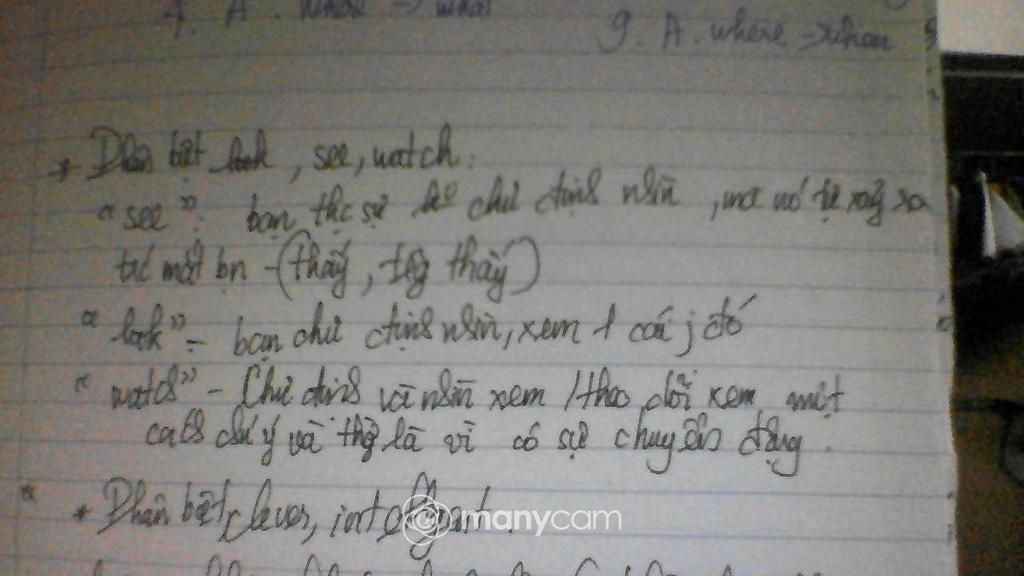 7. A. where -> what
9. A. where ->
* Phân biệt look, see, watch:
"see": bạn thực sự ko chủ định nhìn, mà nó tự xảy ra
trc mắt bn - (thấy, thấy)
"look": - bạn chủ định nhìn, xem 1 cái j đó
"watch" - Chủ định và nhìn xem / theo dõi xem một
cách chú ý và thg là vì có sự chuyển động.
* Phân biệt clever,
manycam